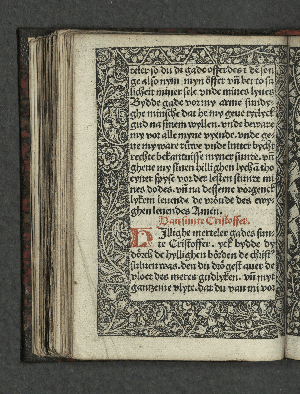 teler so du de gade offerdest de son
ge also nym myn offer vñ bet to sa
licheit miner sele vnde mines lyues
Bydde gade vor my arme sundy
ghe minsche dat he my geue tytlyck
gud na sinem wyllen. vnde beware
my vor alle myne vyende. vnde ge
ne my ware rüwe vnde lutter bycht
rechte bekantnisse myner sunde. vñ
ghene my sinen hillighen lychã tho
eyner spyse vor der lesten stunde mi
nes dodes. vñ na desseme vorgenck
lykem leuende de vröude des ewy
ghen leuendes Amen.
Van sunte Cristoffer.
Hillighe merteler gades sun
te Cristoffer. yck bydde dy
dorch de hyllighen börden de christ
sulues was. den du drögest auer de
vloet des meres gudlyken. vñ myt
gantzeme vlyte. dat du van mi vor